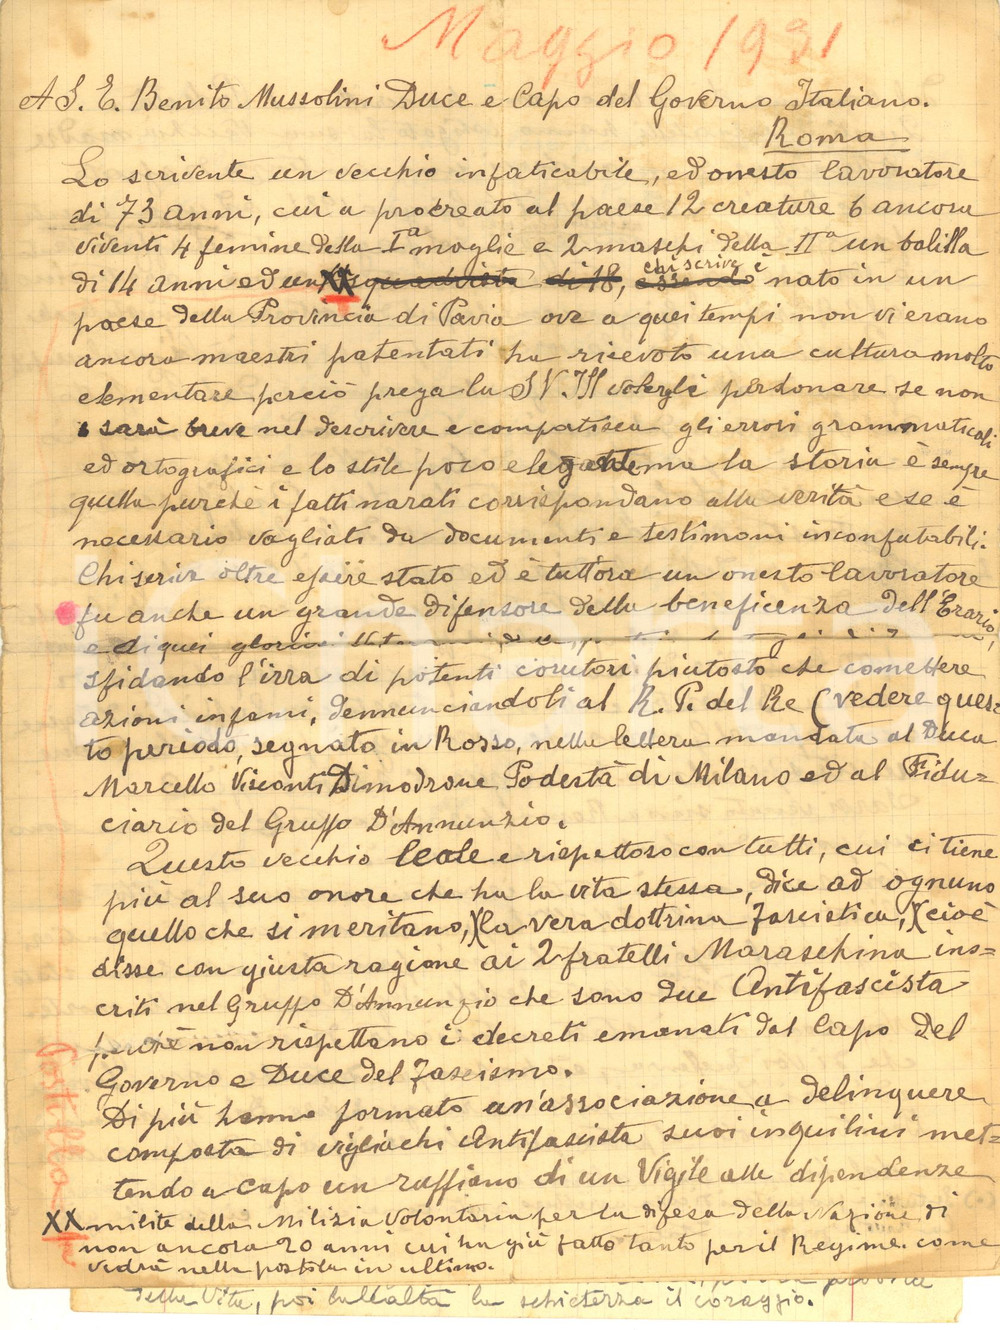 Maggio 1931
A S. E. Benito Mussolini Duce e Capo del Governo Italiano.
Roma
Lo scrivente un vecchio infaticabile, ed onesto lavoratore
di 73 anni, cui a procreato al paese 12 creature 6 ancora
viventi 4 femine della Iª moglie e 2 maschi della IIª un balilla
di 14 anni ed un XX squadrista di 18, essendo chi scrive è nato in un
paese della Provincia di Pavia ove a quei tempi non vi erano
ancora maestri patentati ha ricevoto una cultura molto
elementare perciò prega la S V. Ill volergli perdonare se non
sarà breve nel descrivere e compatisca gli errori grammaticali
ed ortografici e lo stile poco elegante ma la storia è sempre
quella purchè i fatti narati corrispondano alla verità e se è
necessario vagliati da documenti e testimoni inconfutabili.
Chi scrive oltre essere stato ed è tuttora un onesto lavoratore
fu anche un grande difensore della beneficenza dell'Erario,
e di quei gloriosi
sfidando l'irra di potenti corutori piutosto che comettere
azioni infami, dennunciandoli al R. P. del Re (vedere ques=
to periodo, segnato in Rosso, nella lettera mandata al Duca
Marcello Visconti Dimodrone Podestà di Milano ed al Fidu=
ciario del Gruppo D'Annunzio.
Questo vecchio leale e rispettoso con tutti, cui ci tiene
più al suo onore che ha la vita stessa, dice ad ognuno
quello che si meritano, )(la vera dottrina Fascistica,)( cioè
disse con giusta ragione ai 2 fratelli Maraschina ins=
criti nel Gruppo D'Annunzio che sono due Antifascista
perchè non rispettano i decreti emanati dal Capo del
Governo e Duce del Fascismo.
Di più hanno formato un'associazione a delinquere
composta di vigliachi Antifascista suoi inquilini met=
tendo a capo un ruffiano di un Vigile alle dipendenze
Postilla
XX milite della Milizia Volontaria per la difesa della Nazione di
non ancora 20 anni cui ha già fatto tanto per il Regime. come
vedrà nella postila in ultimo.
della Vita, poi l'ullalta la schiettezza il coraggio.